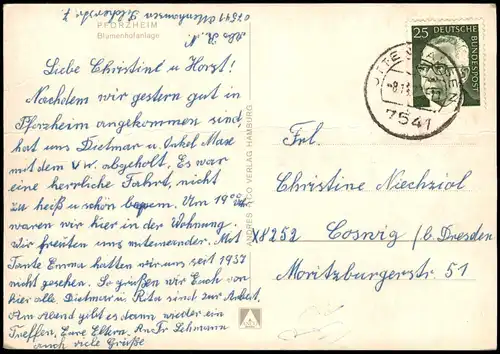 PFORZHEIM
Blumenhofanlage
Liebe Christine u Horst!
Nachdem wir gestern gut in
Pforzheim angekommen sind
hat uns Dietmar u Onkel Max
mit dem VW. abgeholt. Es war
eine herrliche Fahrt, nicht
zu heiß u schön bequem. Um 19⁰⁰ Uhr
waren wir hier in der Wohnung.
Wir freuten uns miteinander. Mit
Tante Emma hatten wir uns seit 1957
nicht gesehen. So grüßen wir Euch von
hier alle Dietmar u Rita sind zur Arbeit.
Am Abend gibt es dann wieder ein
Treffen, Eure Eltern. Fr. Lehmann
auch viele Grüße
ANDRES + CO VERLAG HAMBURG
25 DEUTSCHE BUNDESPOST
7541
Frl.
Christine Niechziol
X8252 Coswig (b. Dresden
Moritzburgerstr. 51